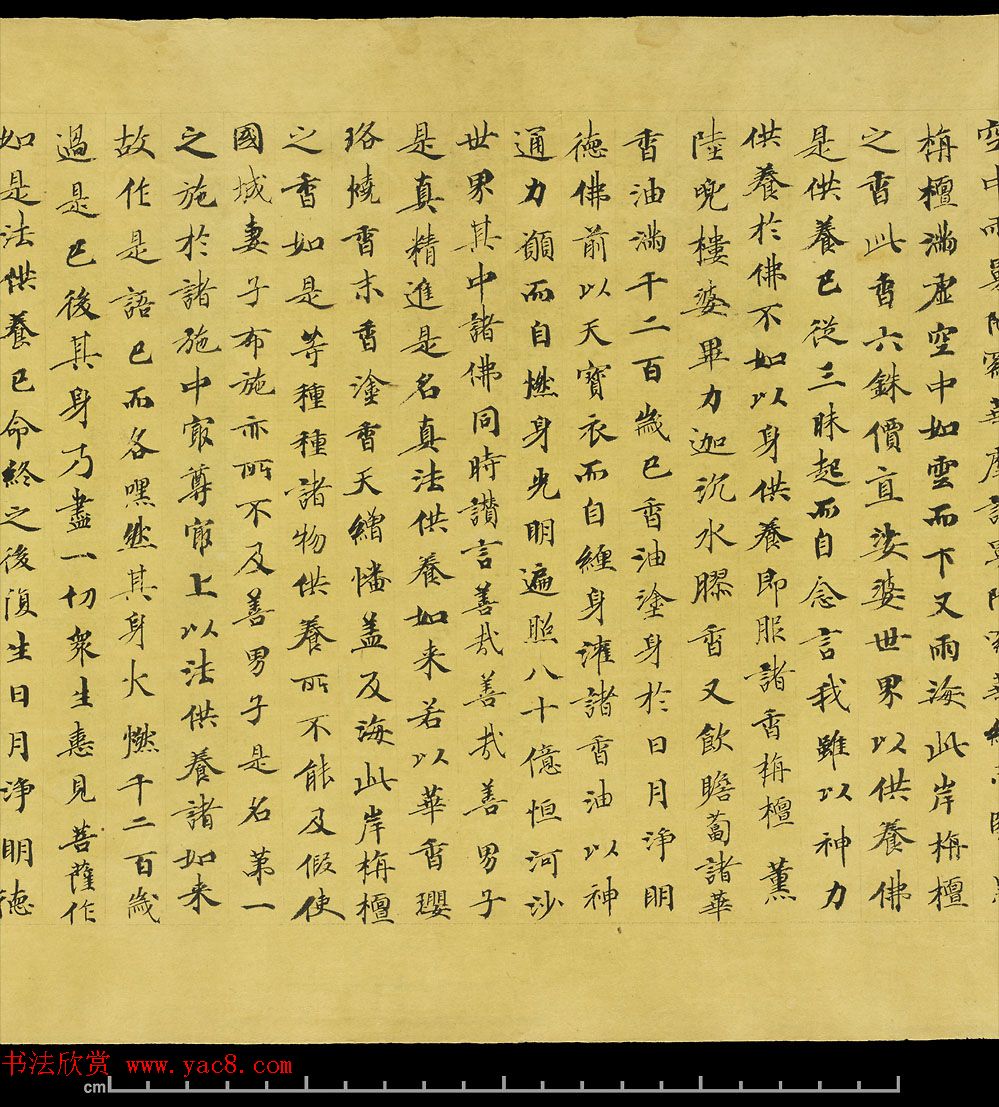 空中雨曼陀羅華摩訶曼陀羅華
栴檀滿虛空中如雲而下又雨海此岸栴檀
之香此香六銖價直娑婆世界以供養佛
是供養已從三昧起而自念言我雖以神力
供養於佛不如以身供養即服諸香栴檀薰
陸兜樓婆畢力迦沉水膠香又飲瞻蔔諸華
香油滿千二百歲已香油塗身於日月淨明
德佛前以天寶衣而自纏身灌諸香油以神
通力願而自燃身光明遍照八十億恒河沙
世界其中諸佛同時讚言善哉善哉善男子
是真精進是名真法供養如来若以華香瓔
珞燒香末香塗香天繒幡蓋及海此岸栴檀
之香如是等種種諸物供養所不能及假使
國城妻子布施亦所不及善男子是名第一
之施於諸施中最尊最上以法供養諸如来
故作是語已而各嘿然其身火燃千二百歲
過是已後其身乃盡一切衆生憙見菩薩作
如是法供養已命終之後復生日月淨明德
书法欣赏 www.yac8.com
cm